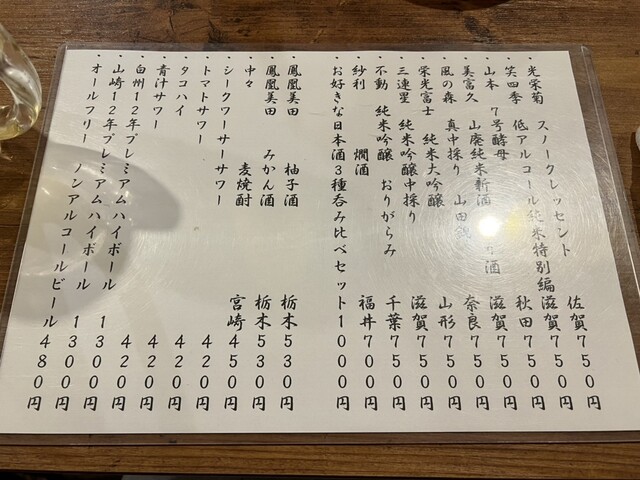 ・光栄菊 スノークレッセント 佐賀750円
・笑四季 低アルコール純米特別編 滋賀750円
・山本 7号酵母 秋田750円
・美富久 山廃純米新酒 酒 滋賀750円
・風の森 真中採り 山田 奈良750円
・栄光富士 純米大吟醸 山形750円
・三連星 純米吟醸中採り 滋賀750円
・不動 純米吟醸 おりがらみ 千葉750円
・紗利 燗酒 福井700円
・お好きな日本酒3種呑み比べセット1000円
・鳳凰美田 柚子酒 栃木530円
・鳳凰美田 みかん酒 栃木530円
・中々 麦焼酎 宮崎450円
・シークワーサーサワー 420円
・トマトサワー 420円
・タコハイ 420円
・青汁サワー 420円
・白州12年プレミアムハイボール 1300円
・山崎12年プレミアムハイボール 1300円
・オールフリー ノンアルコールビール 480円